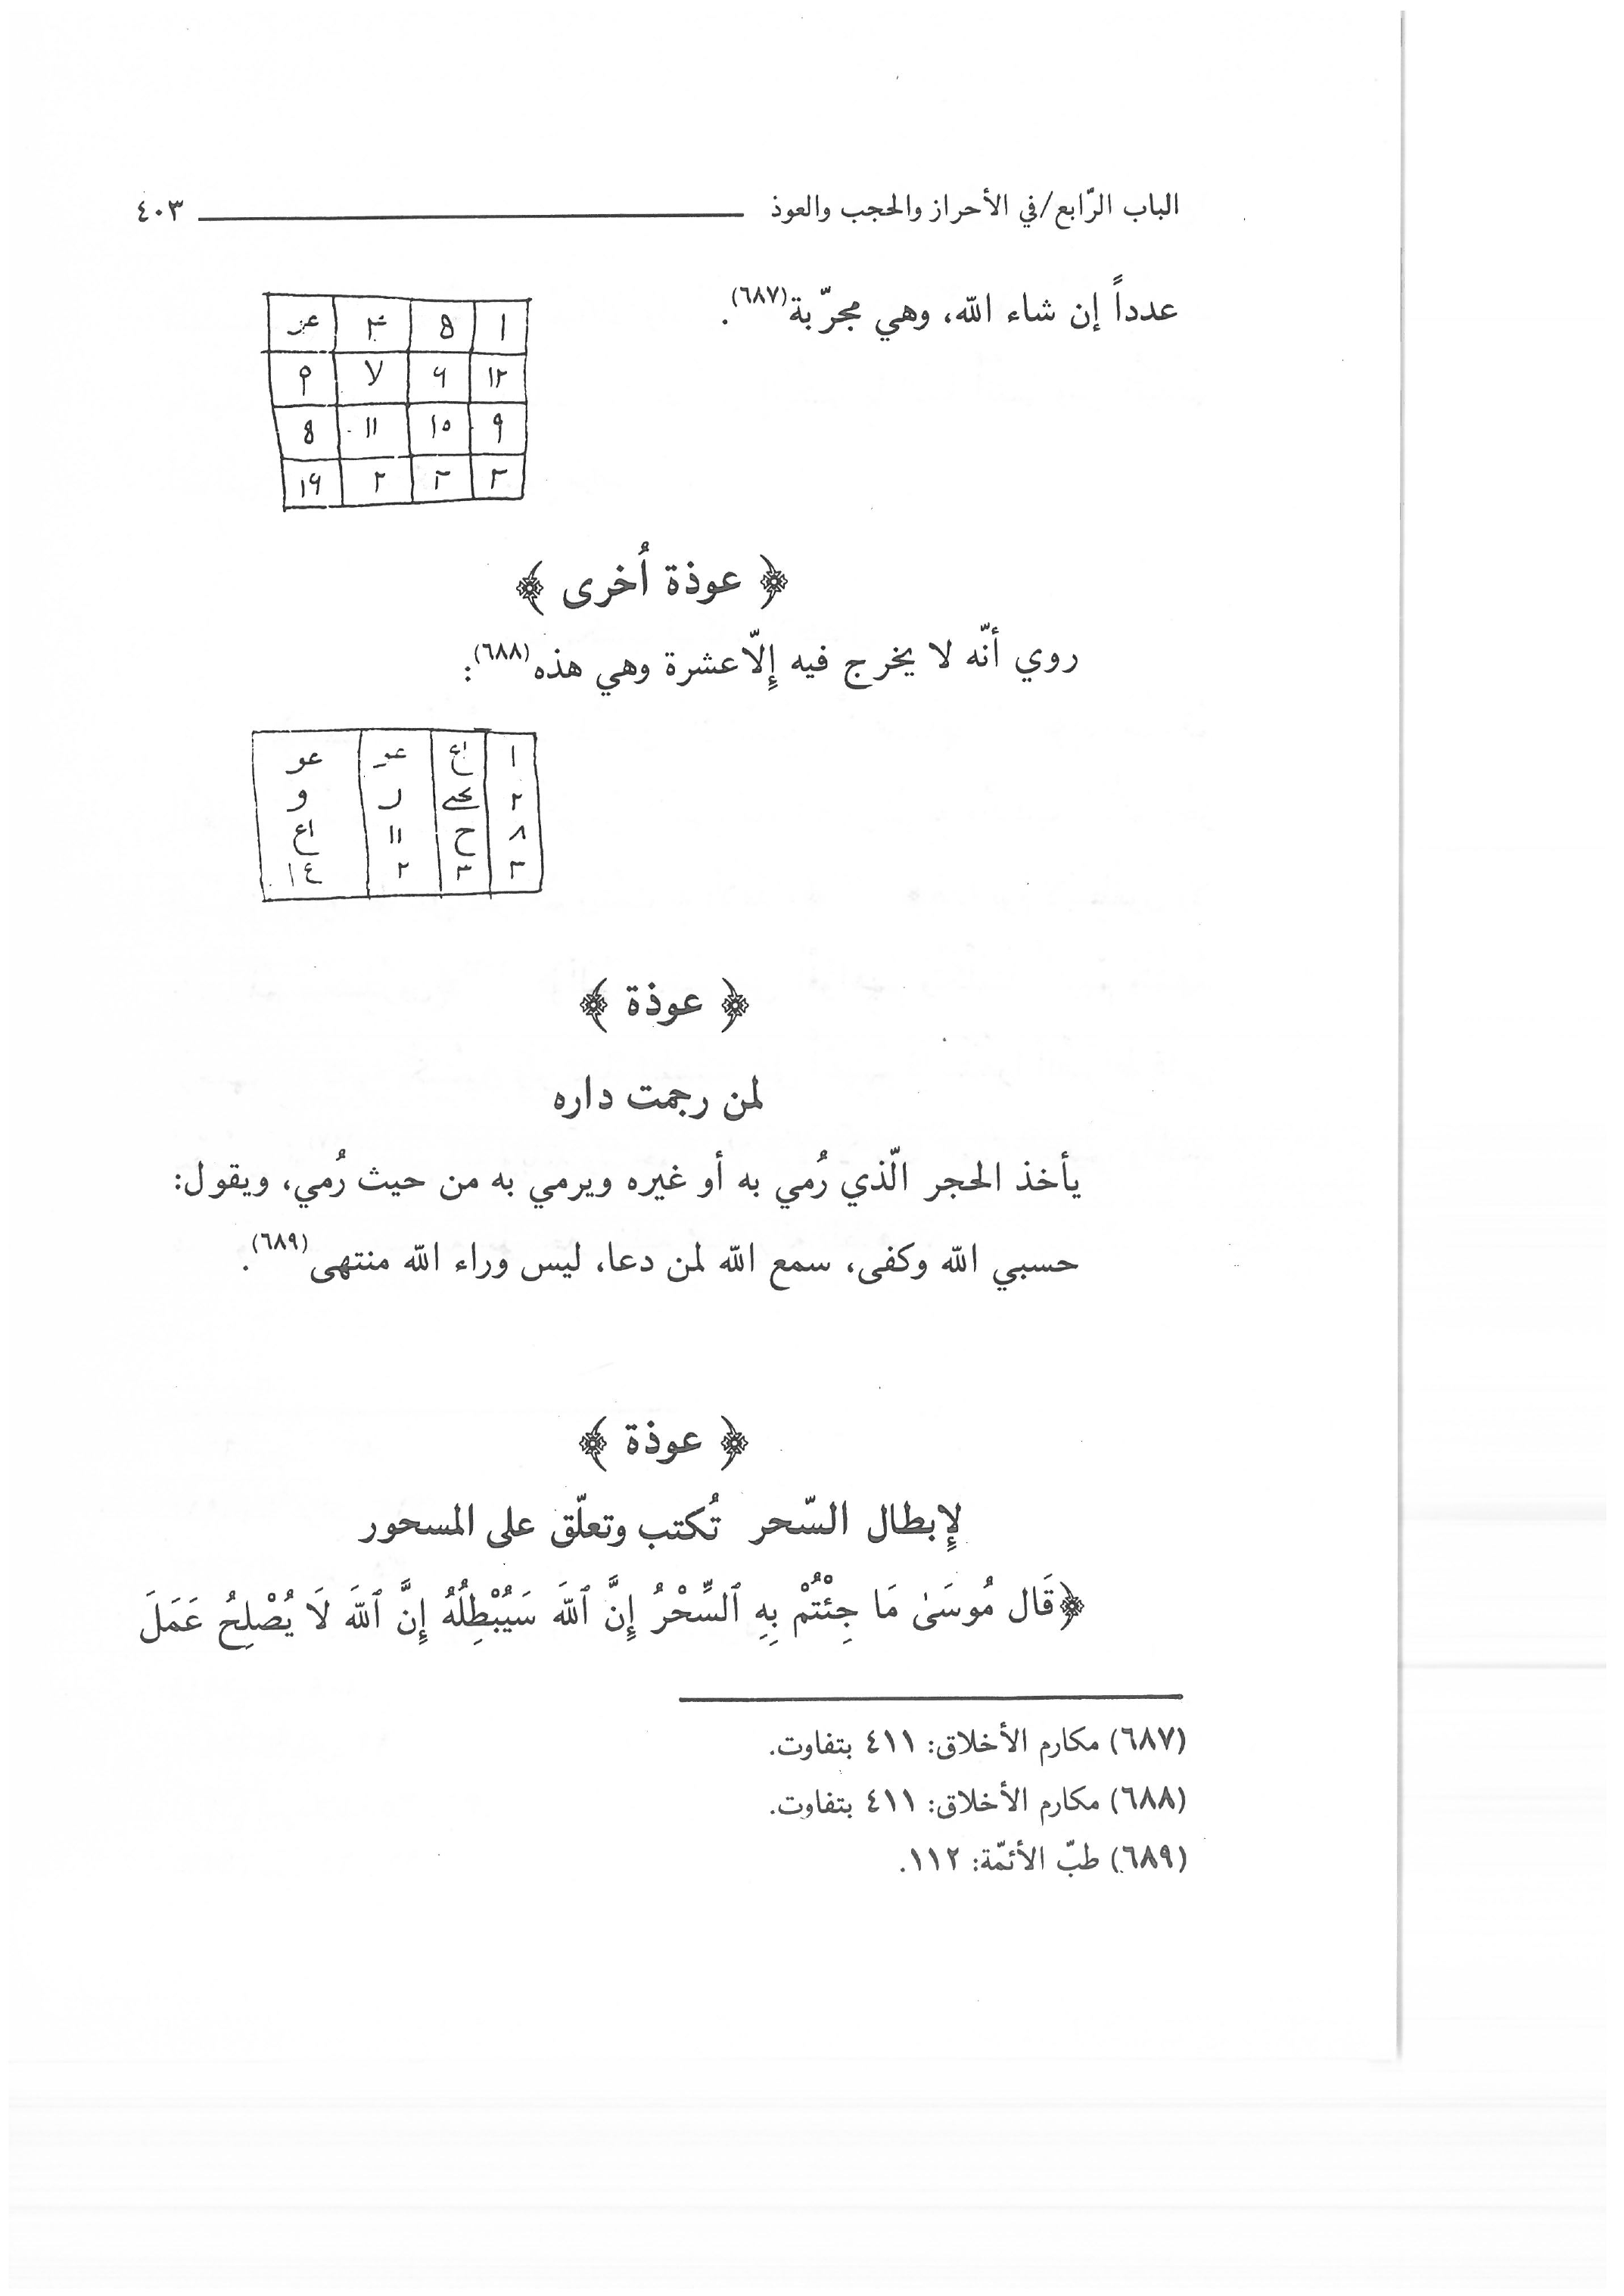 الباب الرّابع/في الأحراز والحجب والعوذ ٤٠٣
عدداً إن شاء الله، وهي مجرّبة(٦٨٧).
١ ۵ ۴ عر
١٢ ۶ ٧ م
٩ ١٥ ١١ 8
٣ ٣ ٢ ١۶
﴿ عوذة أُخرى ﴾
روي أنّه لا يخرج فيه إِلّا عشرة وهي هذه(٦٨٨):
١ اع عو عو
٢ ر و
٨ ح ١١ اع
٣ ٣ ٢ ١٤
﴿ عوذة ﴾
لمن رجمت داره
يأخذ الحجر الّذي رُمي به أو غيره ويرمي به من حيث رُمي، ويقول:
حسبي الله وكفى، سمع الله لمن دعا، ليس وراء الله منتهى(٦٨٩).
﴿ عوذة ﴾
لإِبطال السّحر تُكتب وتعلّق على المسحور
﴿قَالَ مُوسَىٰ مَا جِئْتُمْ بِهِ ٱلسِّحْرُ إِنَّ ٱللهَ سَيُبْطِلُهُ إِنَّ ٱللهَ لَا يُصْلِحُ عَمَلَ
(٦٨٧) مكارم الأخلاق: ٤١١ بتفاوت.
(٦٨٨) مكارم الأخلاق: ٤١١ بتفاوت.
(٦٨٩) طبّ الأئمّة: ١١٢.